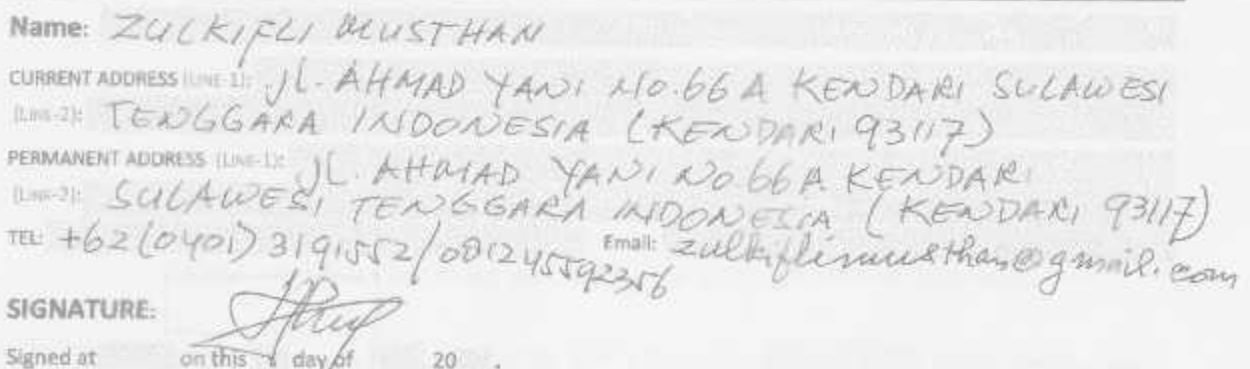 Name: ZULKIFLI MUSTHAN
CURRENT ADDRESS (LINE-1): JL. AHMAD YANI NO.66 A KENDARI SULAWESI
(LINE-2): TENGGARA INDONESIA (KENDARI 93117)
PERMANENT ADDRESS (LINE-1): JL. AHMAD YANI No.66 A KENDARI
(LINE-2): SULAWESI TENGGARA INDONESIA (KENDARI 93117)
TEL: +62 (0401) 3191552/081245592356 Email: zulkiflimusthan@gmail.com
SIGNATURE:
Signed at on this day of 20 .